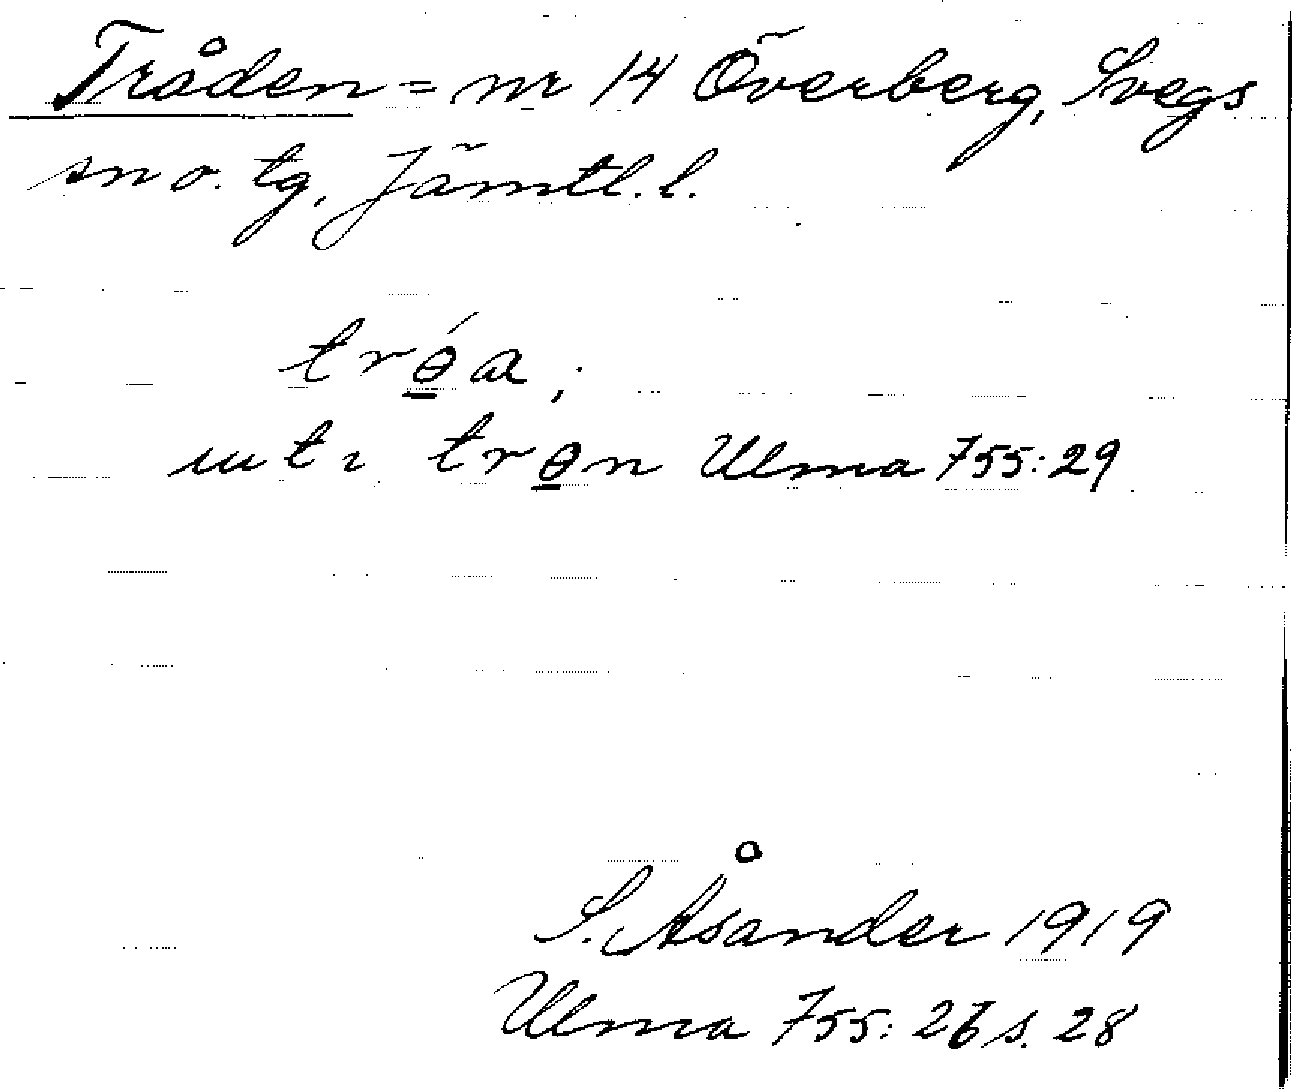 Tråden = nr 14 Överberg, Svegs
sn o. tg, Jämtl. l.
trɵ́a;
utt: trɵn Ulma 755:29
S. Åsander 1919
Ulma 755: 26 s. 28